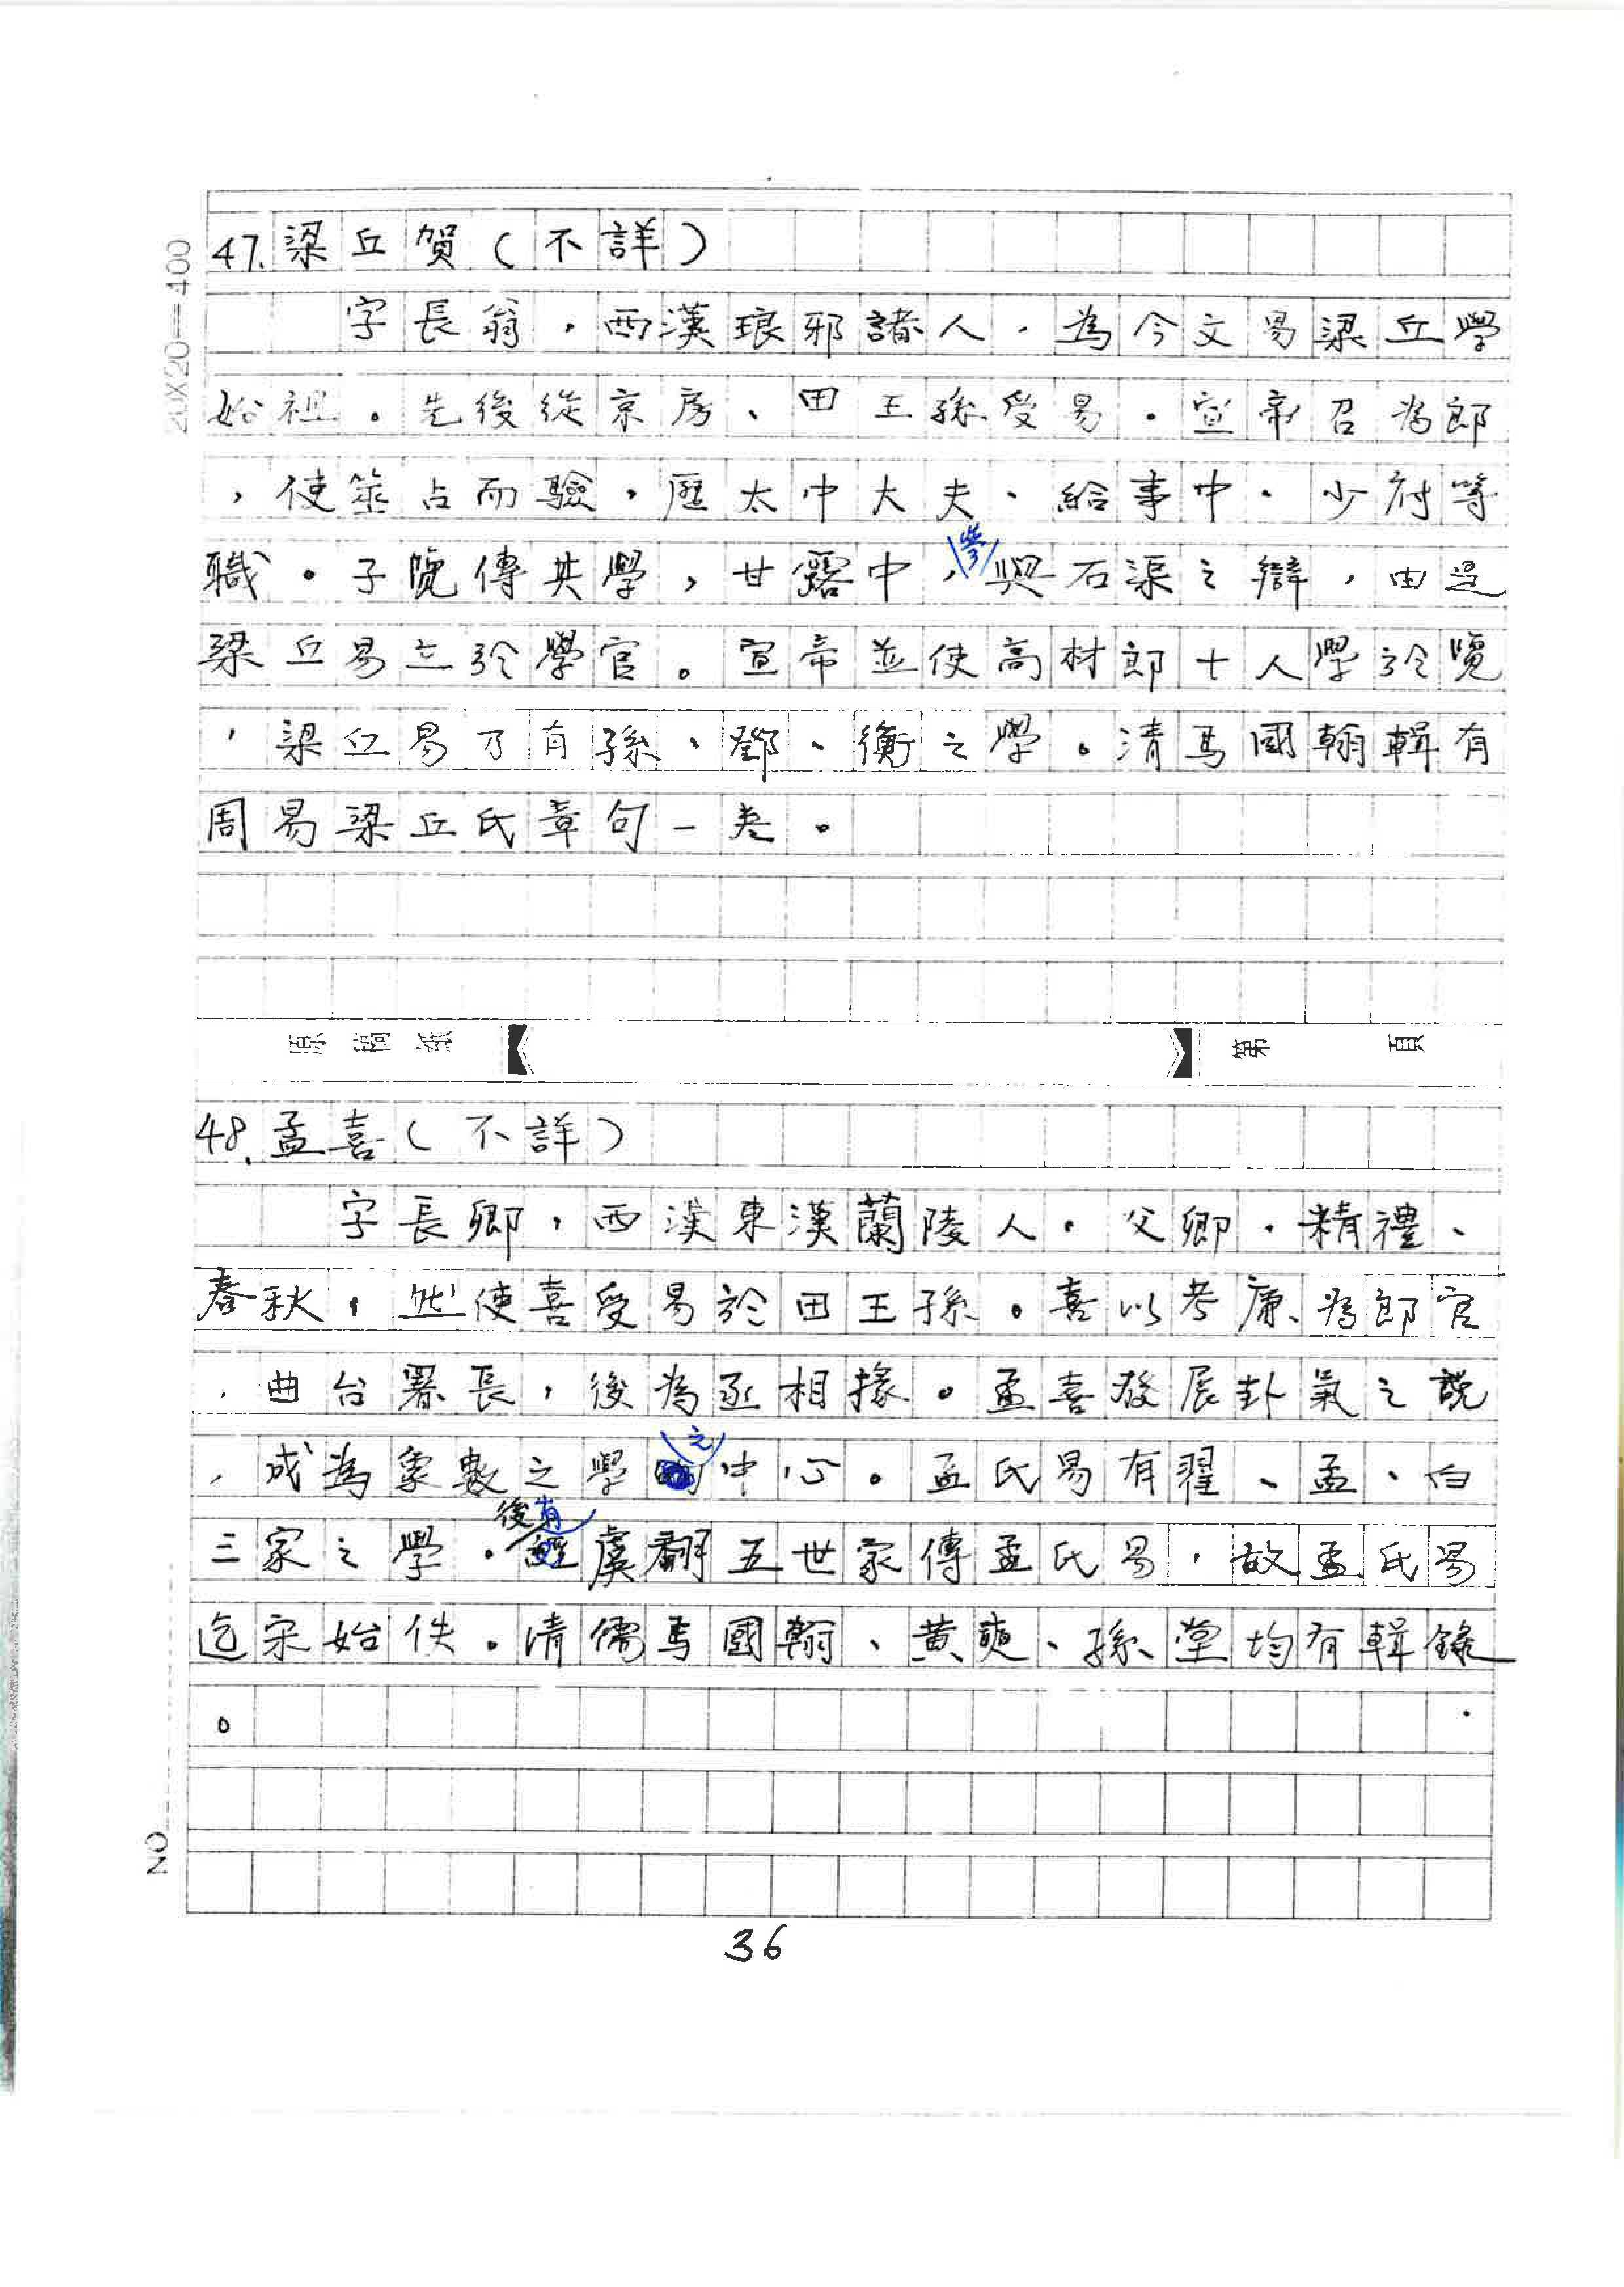 20X20=400
47.梁丘賀(不詳)
字長翁,西漢琅邪諸人,為今文易梁丘學
始祖。先後從京房、田王孫受易。宣帝召為郎
,使筮占而驗,歷太中大夫、給事中、少府等
職。子臨傳其學,甘露中,參與石渠之辯,由是
梁丘易立於學官。宣帝並使高材郎十人學於覽
,梁丘易乃有孫、鄧、衡之學。清馬國翰輯有
周易梁丘氏章句一卷。
原稿紙 第 頁
48.孟喜(不詳)
字長卿,西漢東漢蘭陵人。父卿,精禮、
春秋,然使喜受易於田王孫。喜以孝廉為郎官
,曲台署長,後為丞相掾。孟喜發展卦氣之說
,成為象數之學之中心。孟氏易有翟、孟、白
三家之學。後有虞翻五世家傳孟氏易,故孟氏易
迄宋始佚。清儒馬國翰、黃奭、孫堂均有輯錄
。
NO
36